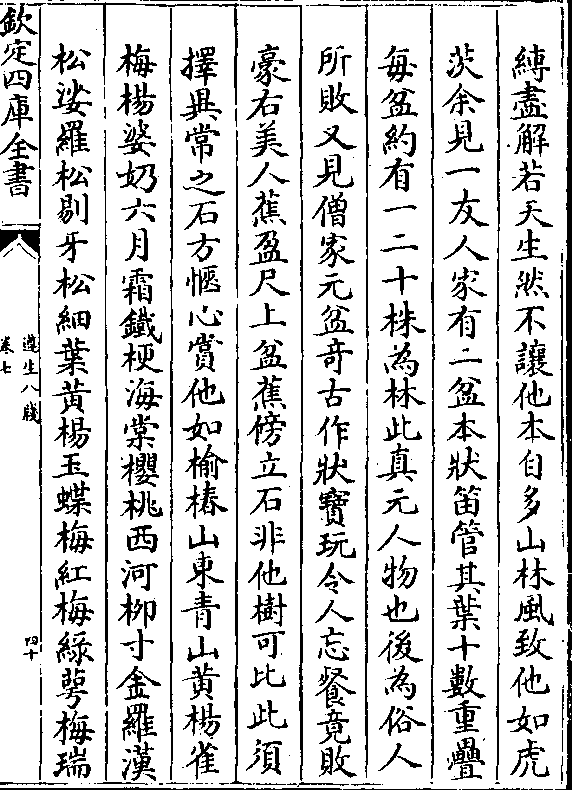 縛盡解若天生然不讓他本自多山林風致他如虎
茨余見一友人家有二盆本狀笛管其葉十數重疊
每盆約有一二十株為林此真元人物也後為俗人
所敗又見僧家元盆奇古作狀寶玩令人忘餐竟敗
豪右美人蕉盈尺上盆蕉傍立石非他樹可比此須
擇異常之石方愜心賞他如榆椿山東青山黃楊雀
梅楊婆奶六月霜鐵梗海棠櫻桃西河柳寸金羅漢
松娑羅松剔牙松細葉黃楊玉蝶梅紅梅綠萼梅瑞
欽定四庫全書
遵生八牋
卷七
四十